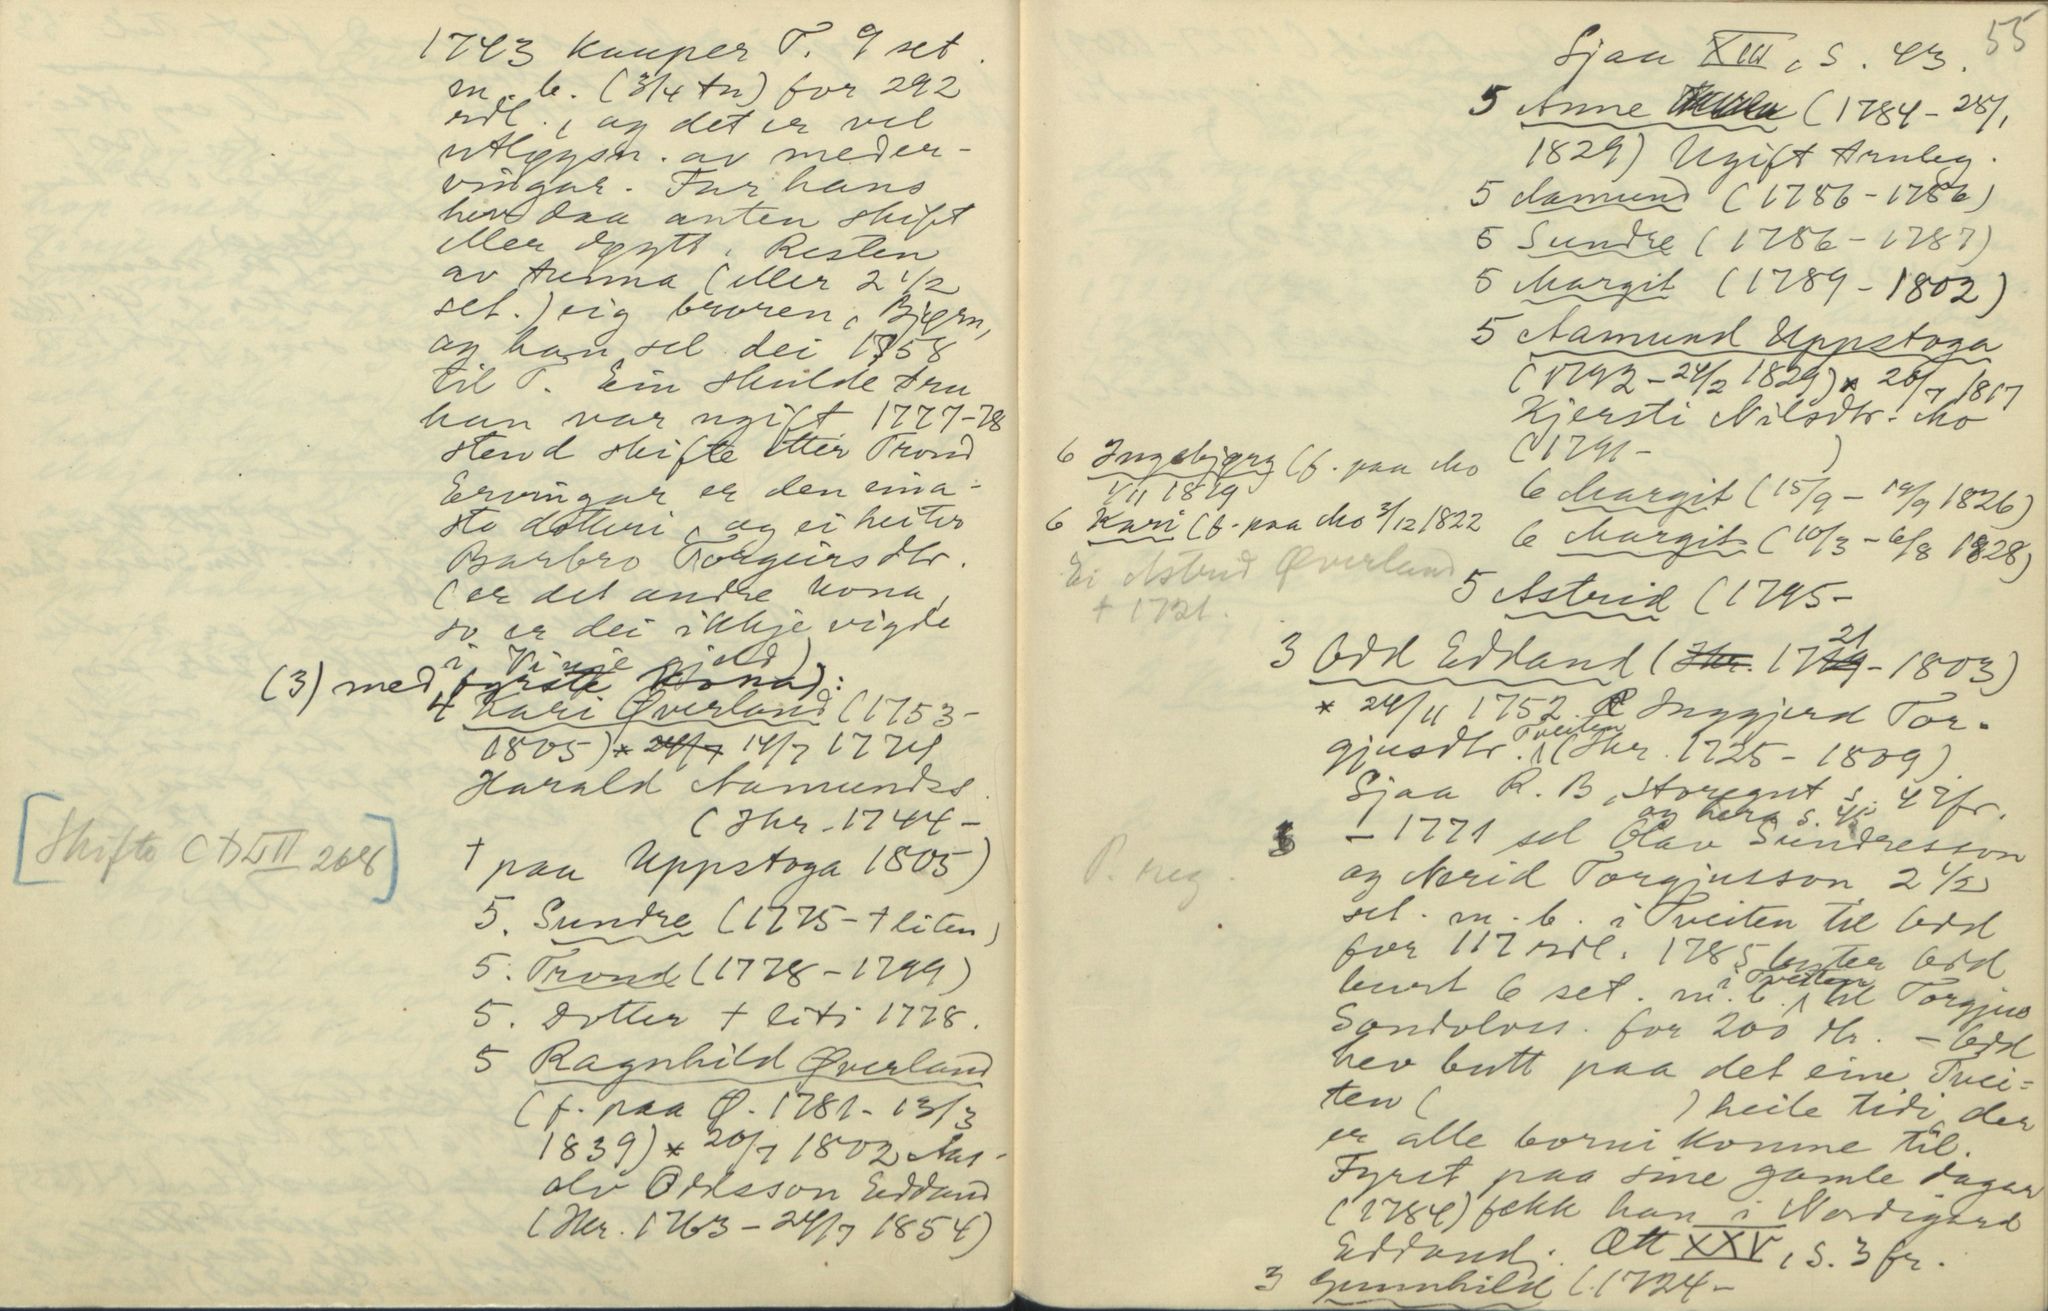 1743 kauper T. 9 set
m. b. (3/4 tn) for 292
rdl., og det er vel
utløysn. av meder-
vingar. Far hans
hev daa anten skift
eller døytt. Resten
av tunna (eller 2 1/2
set.) eig broren, Bjørn,
og han sel dei 1758
til T. Ein skulde tru
han var ugift 1777-78
stend skifte etter Trond
Ervingar er den eina-
ste dotteri, og ei heiter
Barbro Torgeirsdtr.
(er det andre kona,
so er dei ikkje vigde
i Vinje gjeld)
(3) med fyrste kona):
4 Kari Øverland (1753-
1805) * 24/7 14/7 1774
Harald Aamundss.
(Ihr. 1744-
† paa Uppstoga 1805)
[Skifte 268]
5. Sundre (1775- † liten)
5. Trond (1778-1799)
5. Dotter † liti 1778.
5 Ragnhild Øverland
(f. paa Ø. 1781- 13/3
1839) * 20/7 1802 Aas-
olv Oddsson Eddand
(Ihr. 1763- 24/7 1854)
55
Sjaa XIII, S. 43.
5 Anne (1784- 28/1
1829) Ugift truleg.
5 Aamund (1786-1786)
5 Sundre (1786-1787)
5 Margit (1789-1802)
5 Aamund Uppstoga
(1792- 24/2 1829) * 20/7 1817
Kjersti Nilsdtr. Mo
(1791- )
6 Ingebjørg (f. paa Mo
1/11 1819
6 Kari (f. paa Mo 3/12 1822
6 Margit (15/9 - 19/9 1826)
6 Margit (10/3 - 6/8 1828)
Ei Astrid Øverland
† 1721.
5 Astrid (1795-
3 Odd Eddand (Ihr. 1721-1803)
* 24/11 1752 Inggjerd Tor-
gjusdtr. Tveiten (Ihr. 1725-1809)
Sjaa R. B, Storegut s. 47fr.
og hera s. 45
- 1771 sel Olav Sundresson
og Nerid Torgjusson 2 1/2
set. m. b. i Tveiten til Odd
for 117 rdl. 1785 byter Odd
burt 6 set. m. b. i Tveiten til Torgjus
Sondoloss. for 200 dlr. - Odd
hev butt paa det eine Tvei-
ten ( ) heile tidi, der
er alle borni komne til.
Fyrst paa sine gamle dagar
(1784) fekk han i Nordigard
Eddand. Ætt XXV, S. 3 fr.
3 Gunnhild (1724-